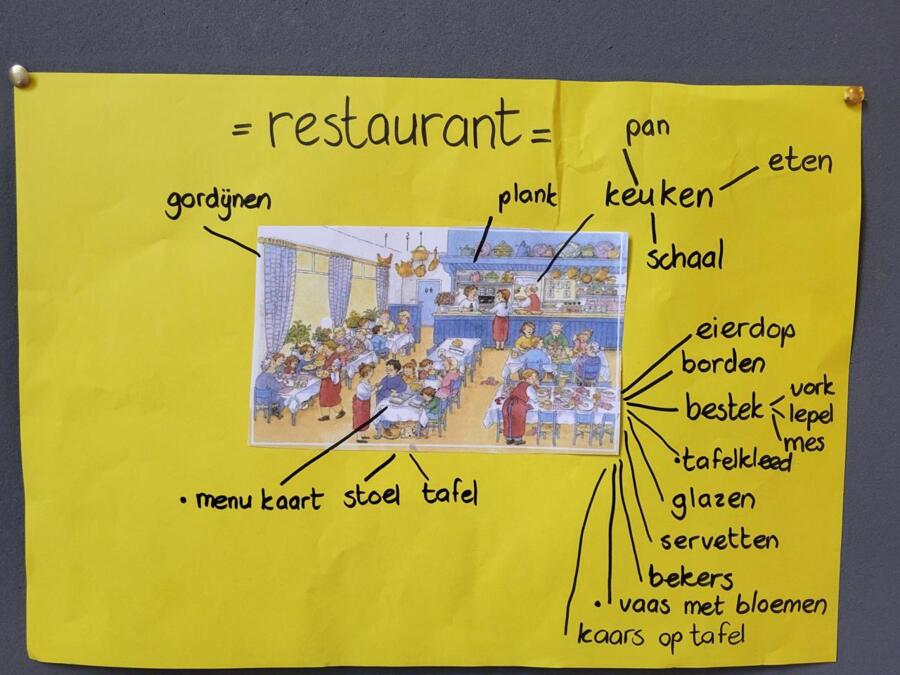 = restaurant =
pan
eten
gordijnen
plank
keuken
schaal
eierdop
borden
bestek
vork
lepel
mes
• tafelkleed
glazen
• menu kaart stoel tafel
servetten
bekers
• vaas met bloemen
kaars op tafel